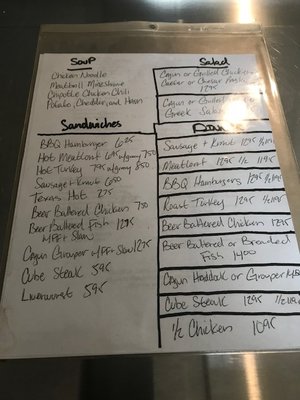 Soup
Chicken Noodle
Meatball Minestrone
Chipotle Chicken Chili
Potato, Cheddar, and Ham
Salad
Cajun or Grilled Chicken
Caesar or
1295
Cajun or Grilled
Greek Salad
Sandwiches
BBQ Hamburger 625
Hot Meatloaf 695 w/gravy 750
Hot Turkey 795 w/gravy 850
Sausage + Kraut 650
Texas Hot 275
Beer Battered Chicken 750
Beer Battered Fish 1295
w/FF + Slaw
Cajun Grouper w/FF + Slaw 1295
Cube Steak 595
Liverwurst 595
Sausage + Kraut 1295
Meatloaf 1295 1/2 1195
BBQ Hamburgers 1295
Roast Turkey 1295
Beer Battered Chicken 1295
Beer Battered or Breaded
Fish 1400
Cajun Haddock or Grouper
Cube Steak 1295
1/2 Chicken 1095